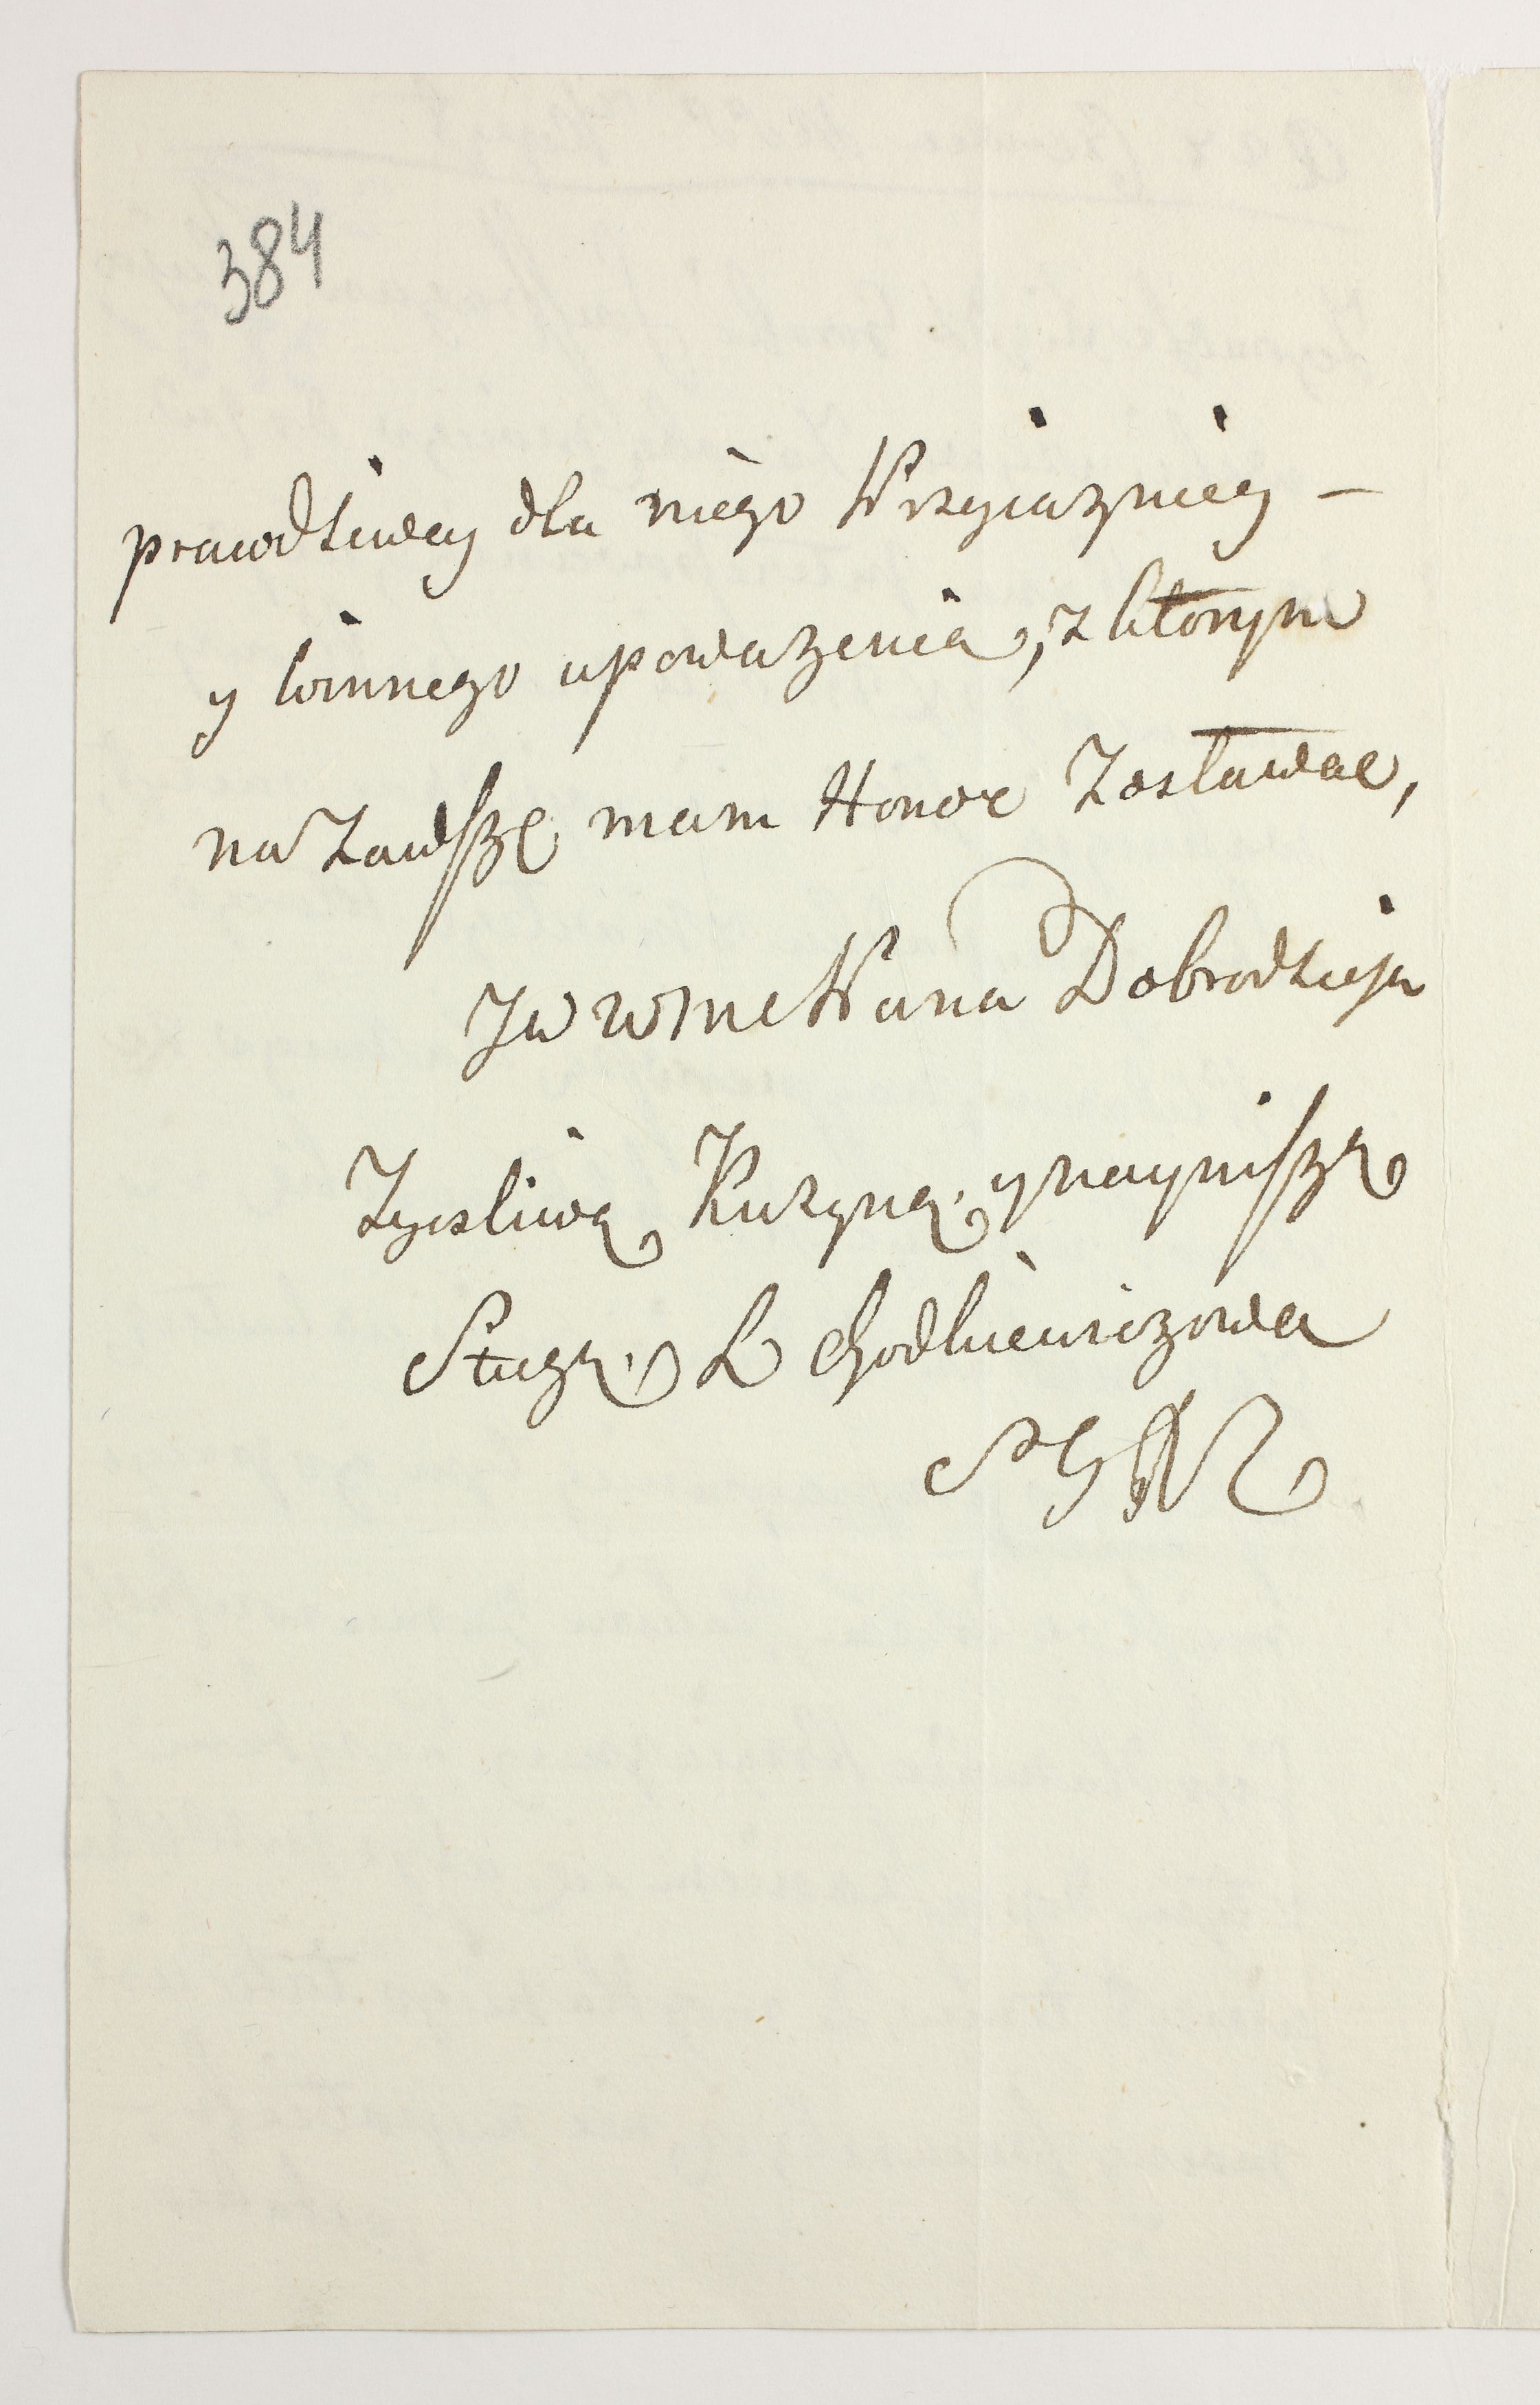 384
prawdziwey dla niego Przyiazniey –
y winnego upowazenia, z ktorym
na Zawszę mam Honor Zostawac,
JW WMC Pana Dobrodzieja
Zycsliwą Kuzyną y nayniszą
Sługą L Chodkiewiczowa